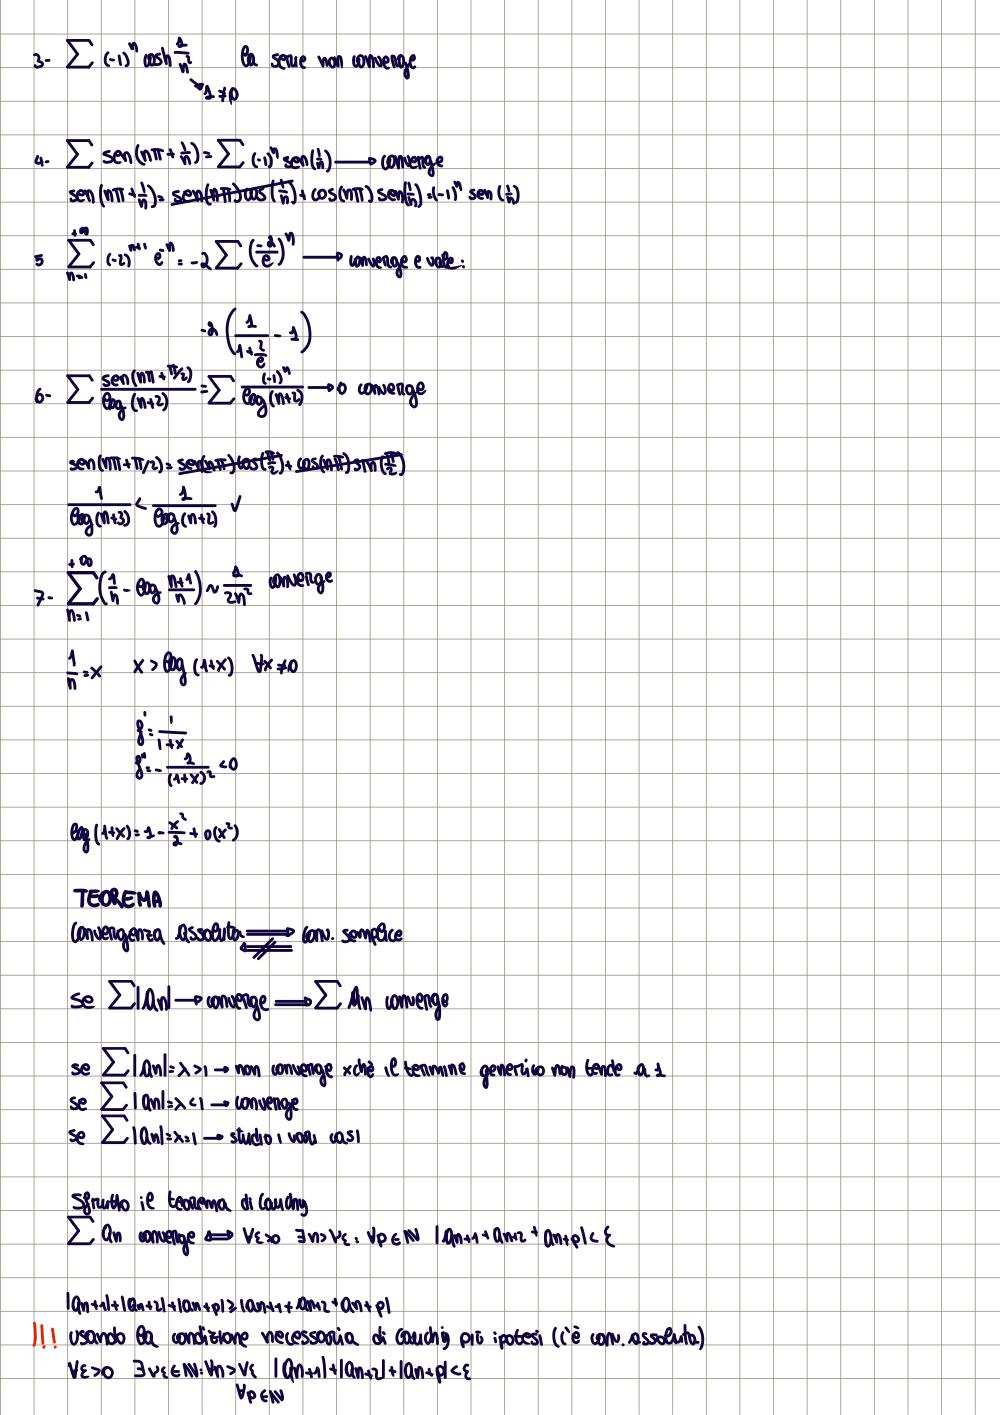 3- ∑ (-1)^n cosh 1/n² la serie non converge
↘ 1 ≠ 0
4- ∑ sen(nπ + 1/n) = ∑ (-1)^n sen(1/n) → converge
sen(nπ + 1/n) = sen(nπ) cos(1/n) + cos(nπ) sen(1/n) = (-1)^n sen(1/n)
5 ∑_{n=1}^{+∞} (-2)^{n+1} e^{-n} = -2 ∑ (-2/e)^n → converge e vale:
-2 (1/(1+2/e) - 1)
6- ∑ sen(nπ + π/2)/log(n+2) = ∑ (-1)^n/log(n+2) → 0 converge
sen(nπ + π/2) = sen(nπ) cos(π/2) + cos(nπ) sin(π/2)
1/log(n+3) < 1/log(n+2) ✓
7- ∑_{n=1}^{+∞} (1/n - log (n+1)/n) ~ 1/2n² converge
1/n = x x > log (1+x) ∀x ≠ 0
f' = 1/(1+x)
f'' = - 1/(1+x)² < 0
log (1+x) = 1 - x²/2 + o(x²)
TEOREMA
Convergenza assoluta ⟹ conv. semplice
⇍
se ∑|an| → converge ⟹ ∑ An converge
se ∑|an| = λ > 1 → non converge xchè il termine generico non tende a 1
se ∑|an| = λ < 1 → converge
se ∑|an| = λ = 1 → studio i vari casi
Sfrutto il teorema di Cauchy
∑ an converge ⟺ ∀ε>0 ∃n>νε : ∀p∈ℕ |an+1 + an+2 + an+p| < ε
|an+1| + |an+2| + |an+p| ≥ |an+1 + an+2 + an+p|
!!! usando la condizione necessaria di Cauchy più ipotesi (c'è conv. assoluta)
∀ε>0 ∃νε∈ℕ : ∀n>νε |an+1| + |an+2| + |an+p| < ε
∀p∈ℕ